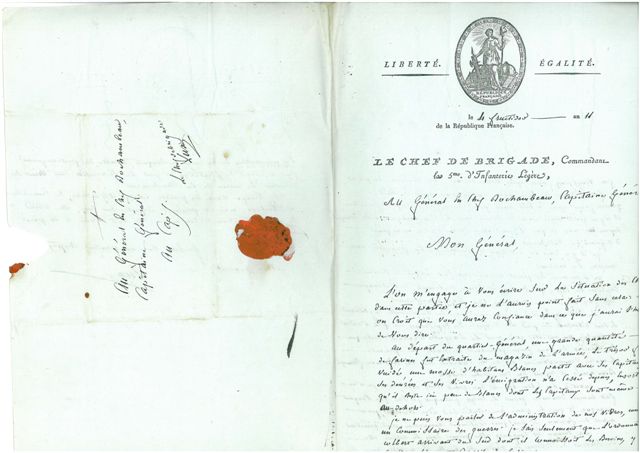 Au Général en chef Rochambeau,
Capitaine Général
au Cap
LIBERTÉ. ÉGALITÉ.
RÉPUBLIQUE
FRANÇAISE
le 4 fructidor an 11
de la République Française.
LE CHEF DE BRIGADE, Commandant
la 5me. d'Infanterie Légère,
Au Général en chef Rochambeau, Capitaine Génér
Mon Général,
L'on m'engage à vous écrire sur la situation des
dans cette partie et je ne l'aurais point fait sans cela.
on croit que vous aurez confiance dans ce que j'aurai l'
de vous dire.
Au départ du quartier-Général, une grande quantité
de farines fut extraite du magasin de l'armée, le trésor
vuidé une masse d'habitans Blancs partit avec ses capitaux
ses denrées et ses vivres. L'émigration n'a cessé depuis,
qu'il reste ici peu de Blancs dont les capitaux sont même
au dehors.
je ne puis vous parler de l'administration de nos vivres,
un commissaire des guerres. je sais seulement que l'ordonna
Colbert arrivant du Sud dont il connaissait les Besoins, y